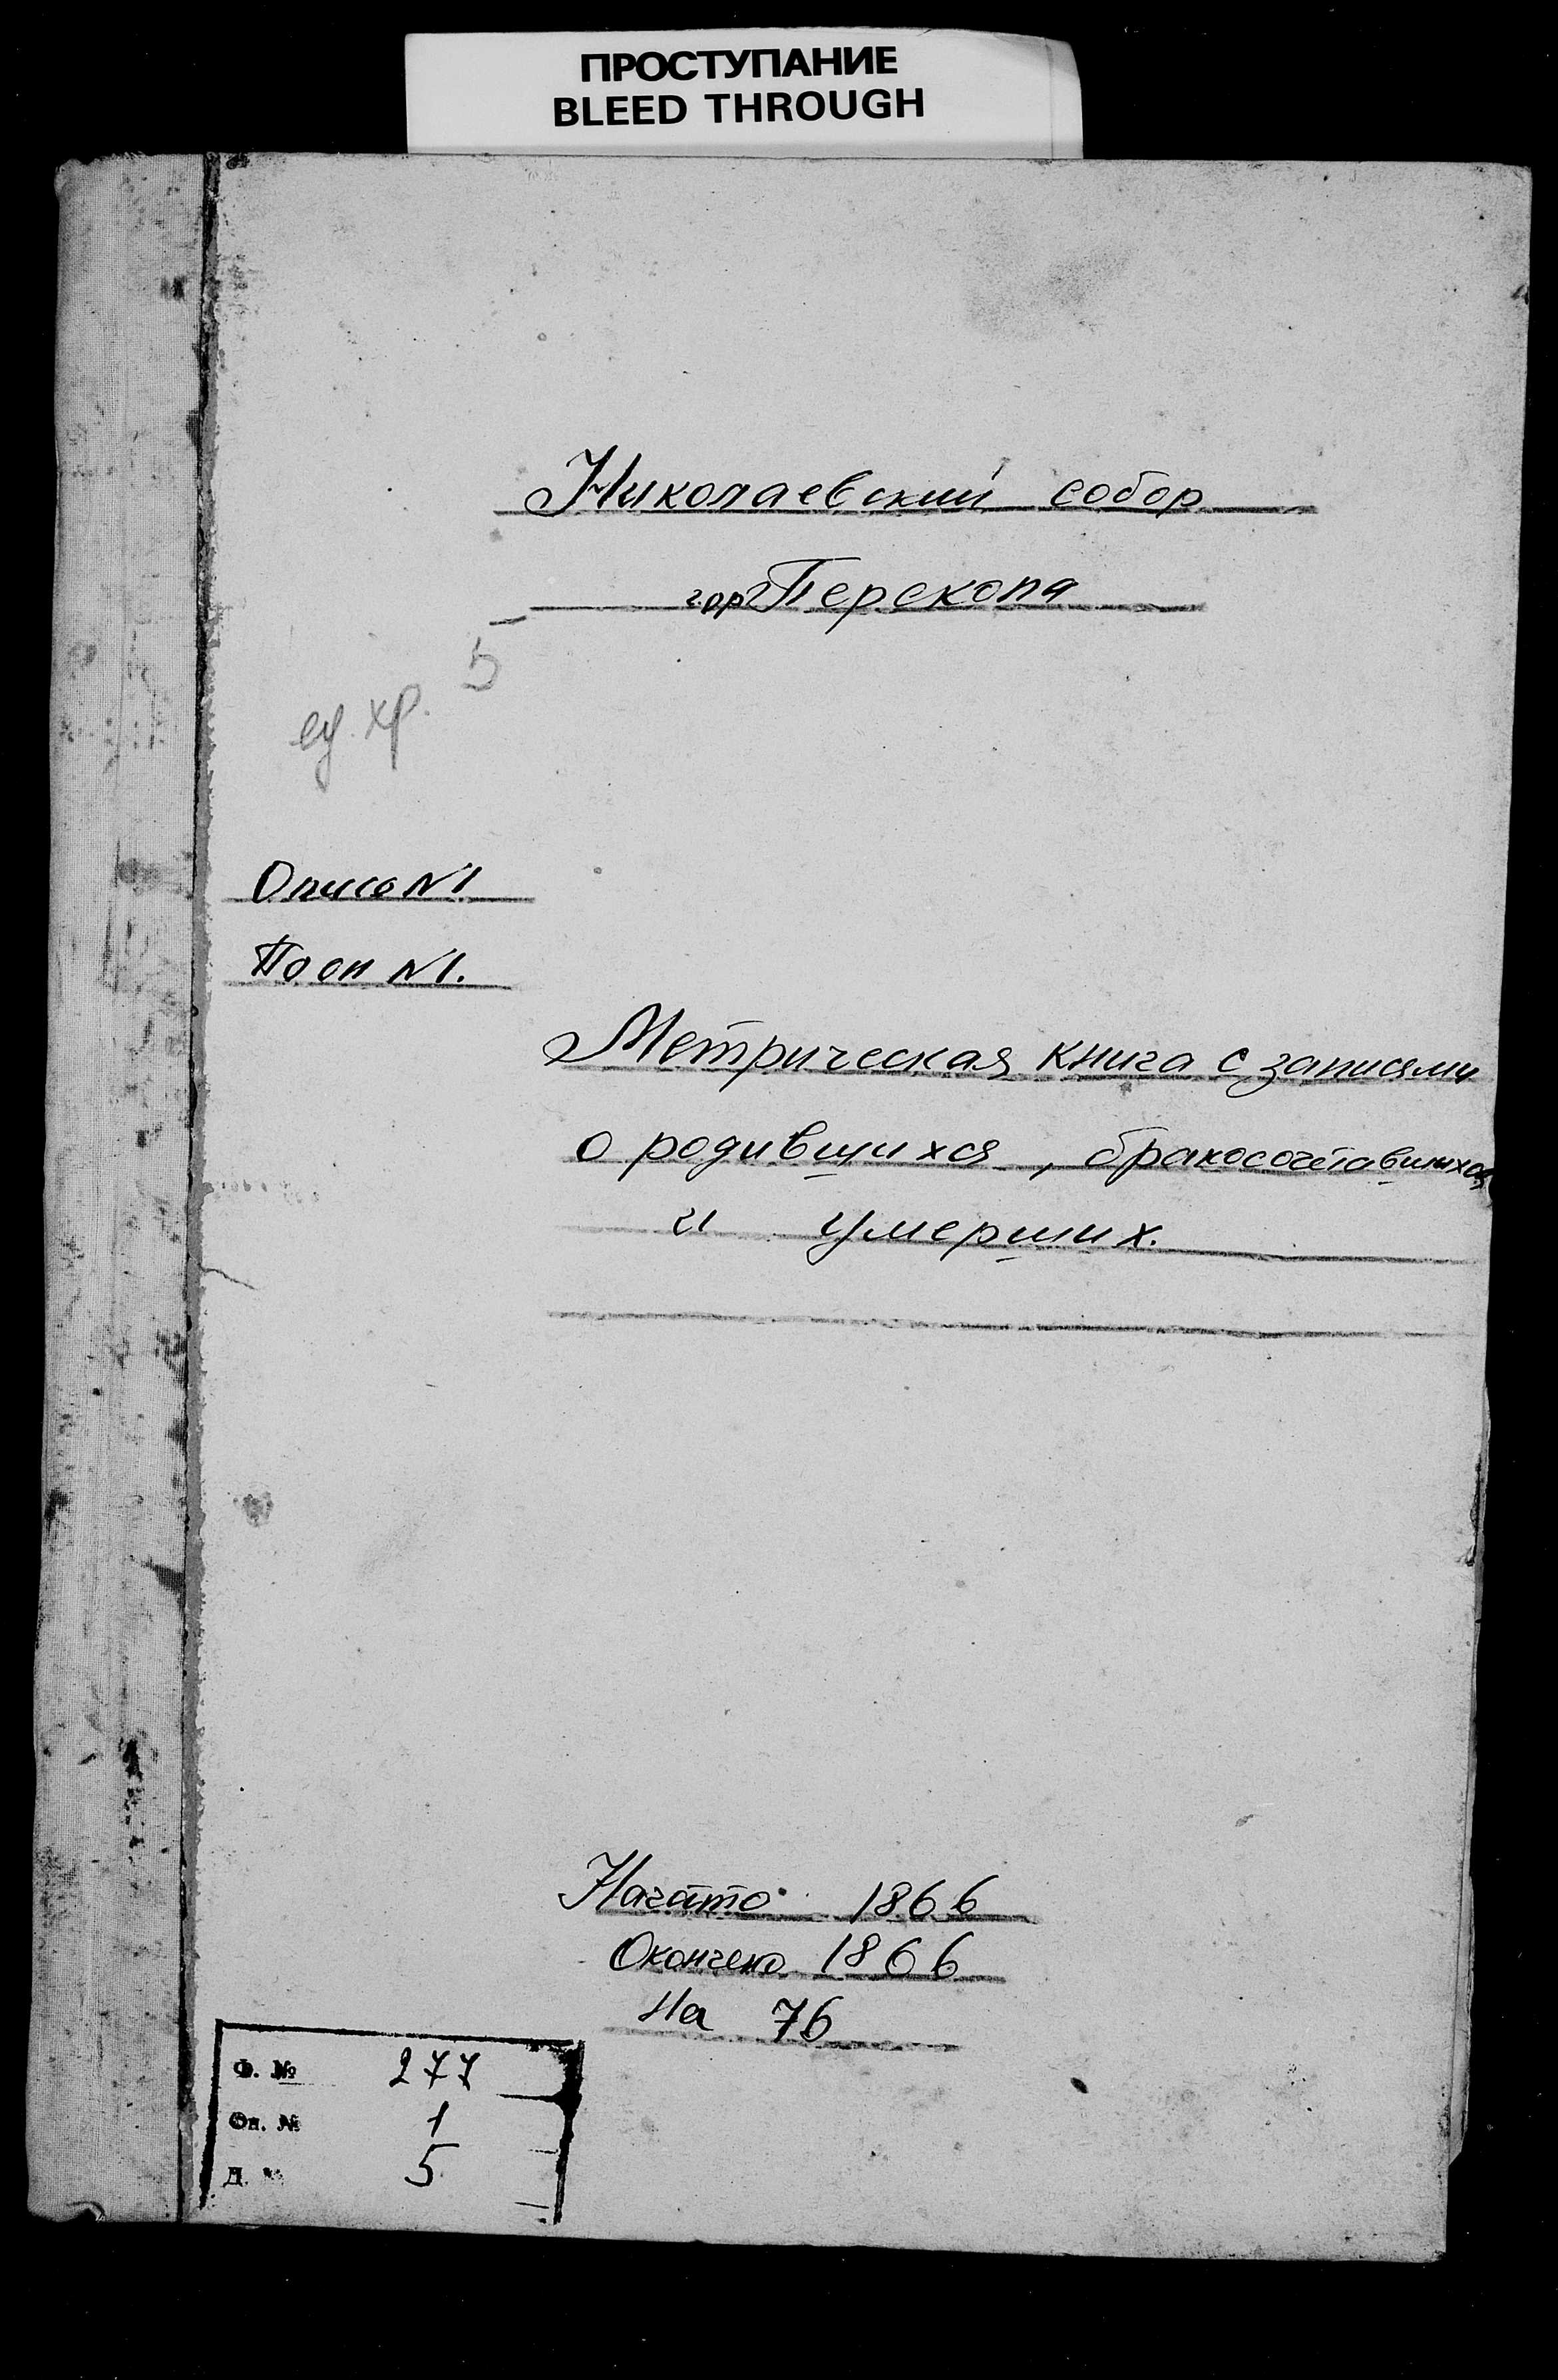 ПРОСТУПАНИЕ
BLEED THROUGH
Николаевский собор
гор Перекопа
ед. хр. 5
Опись №1
По оп №1.
Метрическая книга с записями
о родившихся, бракосочетавшихся
и умерших.
Начато 1866
Окончено 1866
На 76
Ф. № 277
Оп. № 1
Д. № 5